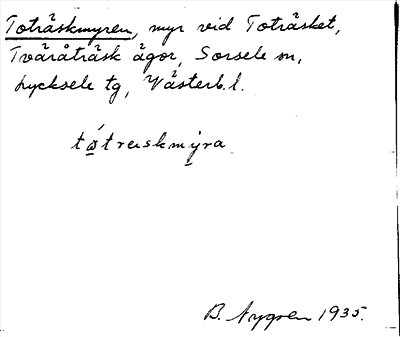 Toträskmyren, myr vid Toträsket,
Tvåråträsk ägor, Sorsele sn,
Lycksele tg, Västerb. l.
tὼtreıskmy̱ra
B. Nygren 1935.